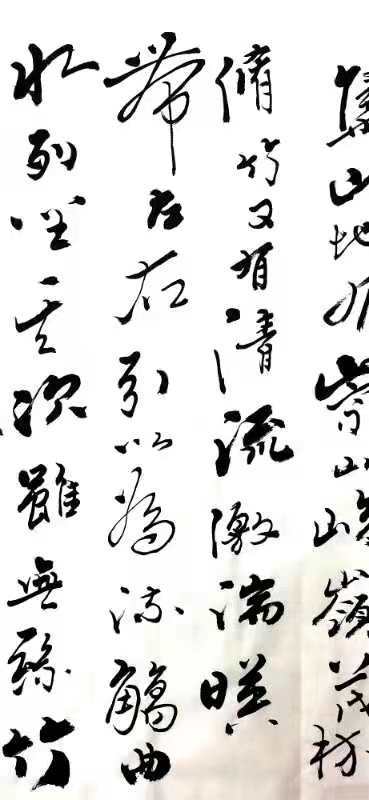 集此地有崇山峻嶺茂林
脩竹又有清流激湍暎
帶左右引以為流觴曲
水列坐其次雖無絲竹